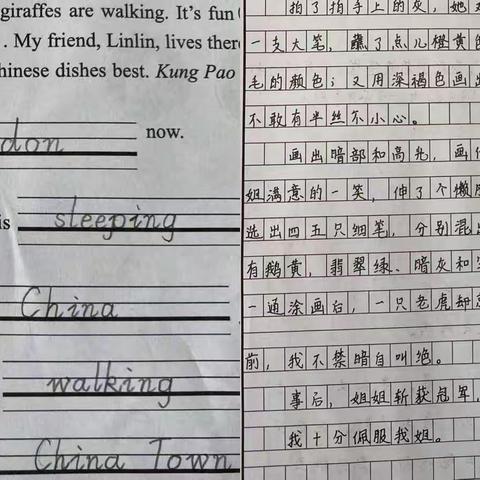 giraffes are walking. It's fun
. My friend, Linlin, lives there
hinese dishes best. Kung Pao
don now.
is sleeping
China
walking
China Town
拍了拍手上的灰，她
一支大笔，蘸了点儿橙黄色
毛的颜色；又用深褐色画出
不敢有半丝不小心。
画出暗部和高光，画
姐满意的一笑，伸了个懒
选出四五只细笔，分别混出
有鹅黄，翡翠绿、暗灰和
一通涂画后，一只老虎却
前，我不禁暗自叫绝。
事后，姐姐斩获冠军，
我十分佩服我姐。